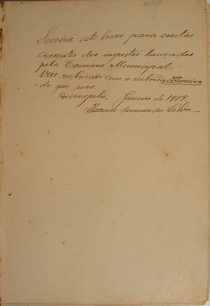 Servirá este livro para contas
correntes dos impostos lançados
pela Camara Municipal.
Vae rubricado com a rubrica Ferreira
de que uso
Janeiro de 1919
Ferreira da Silva